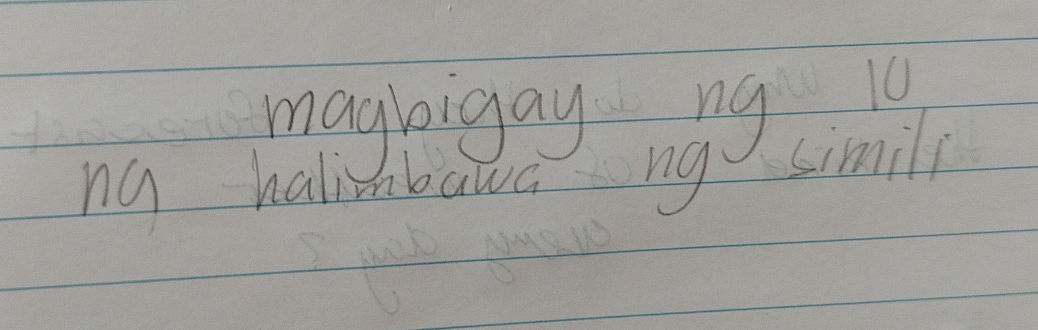 magbigay ng 10
ng halimbawa ng simili